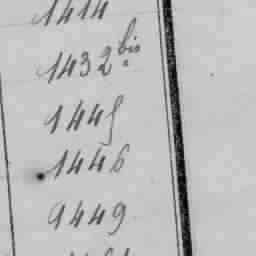 1414
1432 bis
1445
1446
1449